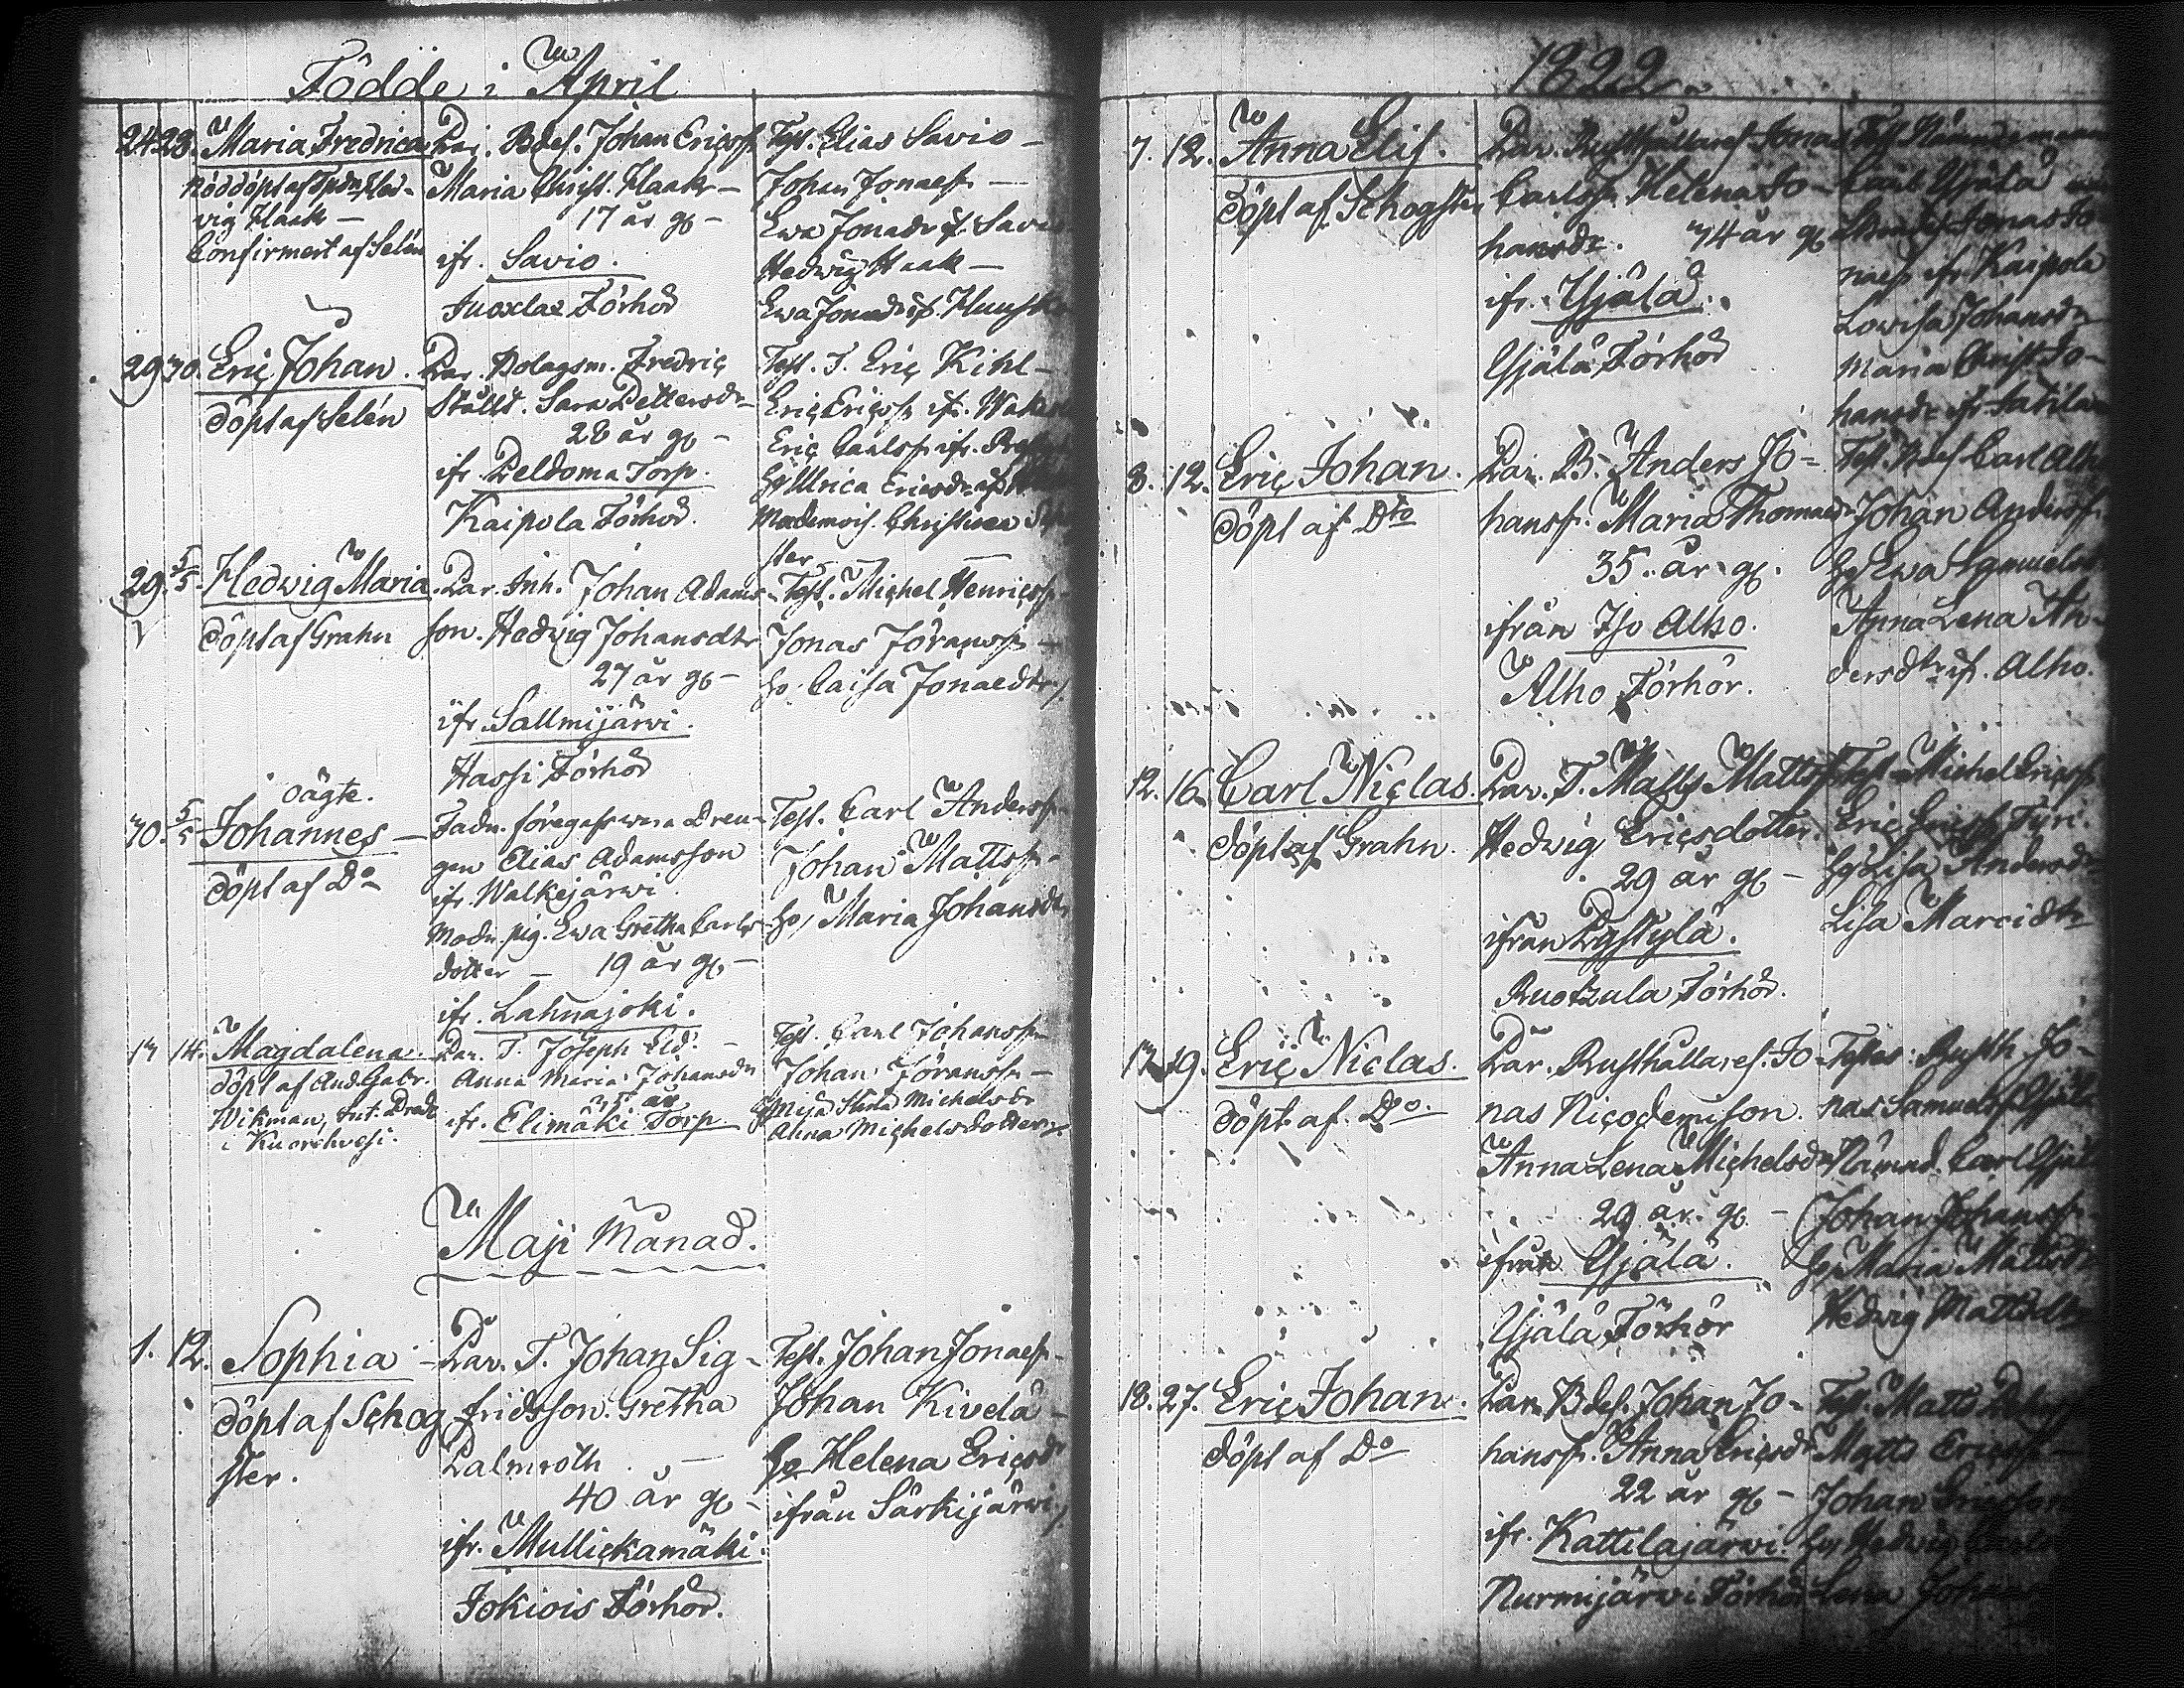 Födde i April
24. 28. Maria Fredrica
Nöddöpt af
vig Haak
Confirmert af Selén
Par. Bdes. Johan Ericss.
Maria Christ. Haak
17 år g.
ifr. Savio.
Förhör
Test. Elias Savio
Johan Jonaess.
Ewa Jonadr ifr. Savio
Hedwig Haak
29 30. Eric Johan.
döpt af Selén
Par. Bolagsm. Fredric
Ståltt. Sara Pettersdr
28 år g.
ifr. Peldoma Torp.
Kaipola Förhör.
Test. T. Eric Kihl
Eric Ericss. ifr.
Eric Carlss. ifr.
Hu Ulrica Ericsdr
Mademois. Christina
ster
29. 5/5. Hedwig Maria
döpt af Grahn
Par. Inh. Johan Adams-
son. Hedwig Johansdtr
27 år g.
ifr. Sallmijärwi.
Hassi Förhör
Test. Michel Henricss.
Jonas Jöranss.
Hu. Caisa Jonaedtr.
oägte.
30. 5/5 Johannes
döpt af Do
Fadr. föregafs wara Dren-
gen Elias Adamsson
ifr. Walkejärwi
Modr. pig. Ewa Gretha Carls-
dotter 19 år g.
ifr. Lahnajoki.
Test. Carl Anderss.
Johan Mattss.
Hu, Maria Johansdr
13 14. Magdalena
döpt af And. Gabr.
Wikman,
i Kuorehvesi.
Par. T. Joseph
Anna Maria Johansdr
35 år
ifr. Elimäki Torp
Test. Carl Johanss.
Johan Jöranss.
Maja Stina Michelsdr
Anna Michelsdotter
Maji Månad.
1. 12. Sophia
döpt af Schog
ster.
Par. T. Johan Sig-
fridsson. Gretha
Palmroth
40 år g.
ifr. Mullickamäki.
Jokiois Förhör.
Test. Johan Jonaess.
Johan Kivelä
Hu Helena Ericsdr
ifrån Särkijärwi
1822.
7. 12. Anna Elis.
döpt af Schogster
Par. Rusthållares. Jonas
Carlss. Helena Jo-
hansdr. 34 år g.
ifr. Yjälä.
Yjälä Förhör
Test. Nämndeman
Carl Yjälä
Jonas Jo-
naess. ifr. Kaipola
Lowisa Johansdr
Maria Christ. Jo-
hansdr ifr.
8. 12. Eric Johan.
döpt af Dto
Par. B. Anders Jo-
hanss. Maria Thomaedr
35. år g.
ifrån Iso Alho.
Alho Förhör.
Test. Bdes. Carl Alho
Johan Anderss.
Hu Ewa Samuelsdr
Anna Lena An-
dersdtr ifr. Alho.
12. 16. Carl Niclas.
döpt af Grahn.
Par. T. Matts Mattss.
Hedwig Ericsdotter.
29 år g.
ifrån
Ruotzala Förhör.
Test. Michel Ericss.
Eric Ericss. Tyri.
Hu Lisa Andersdr
Lisa Marcidtr
19. Eric Niclas.
döpt af Do.
Par. Rusthållares. Jo-
nas Nicodemisson.
Anna Lena Michelsdr
29 år g.
ifrån Yjälä.
Yjälä Förhör
Testes: Rusth. Jo-
nas Samuelss. Yjälä
Nämnd. Carl Yjälä
Johan Johanss.
Hu Maria Mattsdr
Hedwig Mattsdtr
18. 27. Eric Johan.
döpt af Do
Par. Bdes. Johan Jo-
hanss. Anna Ericsdr
22 år g.
ifr. Kattilajärwi.
Nurmijärwi Förhör
Test. Matts
Matts Ericss.
Johan Ericsson
Hu Hedwig
Lena Johans